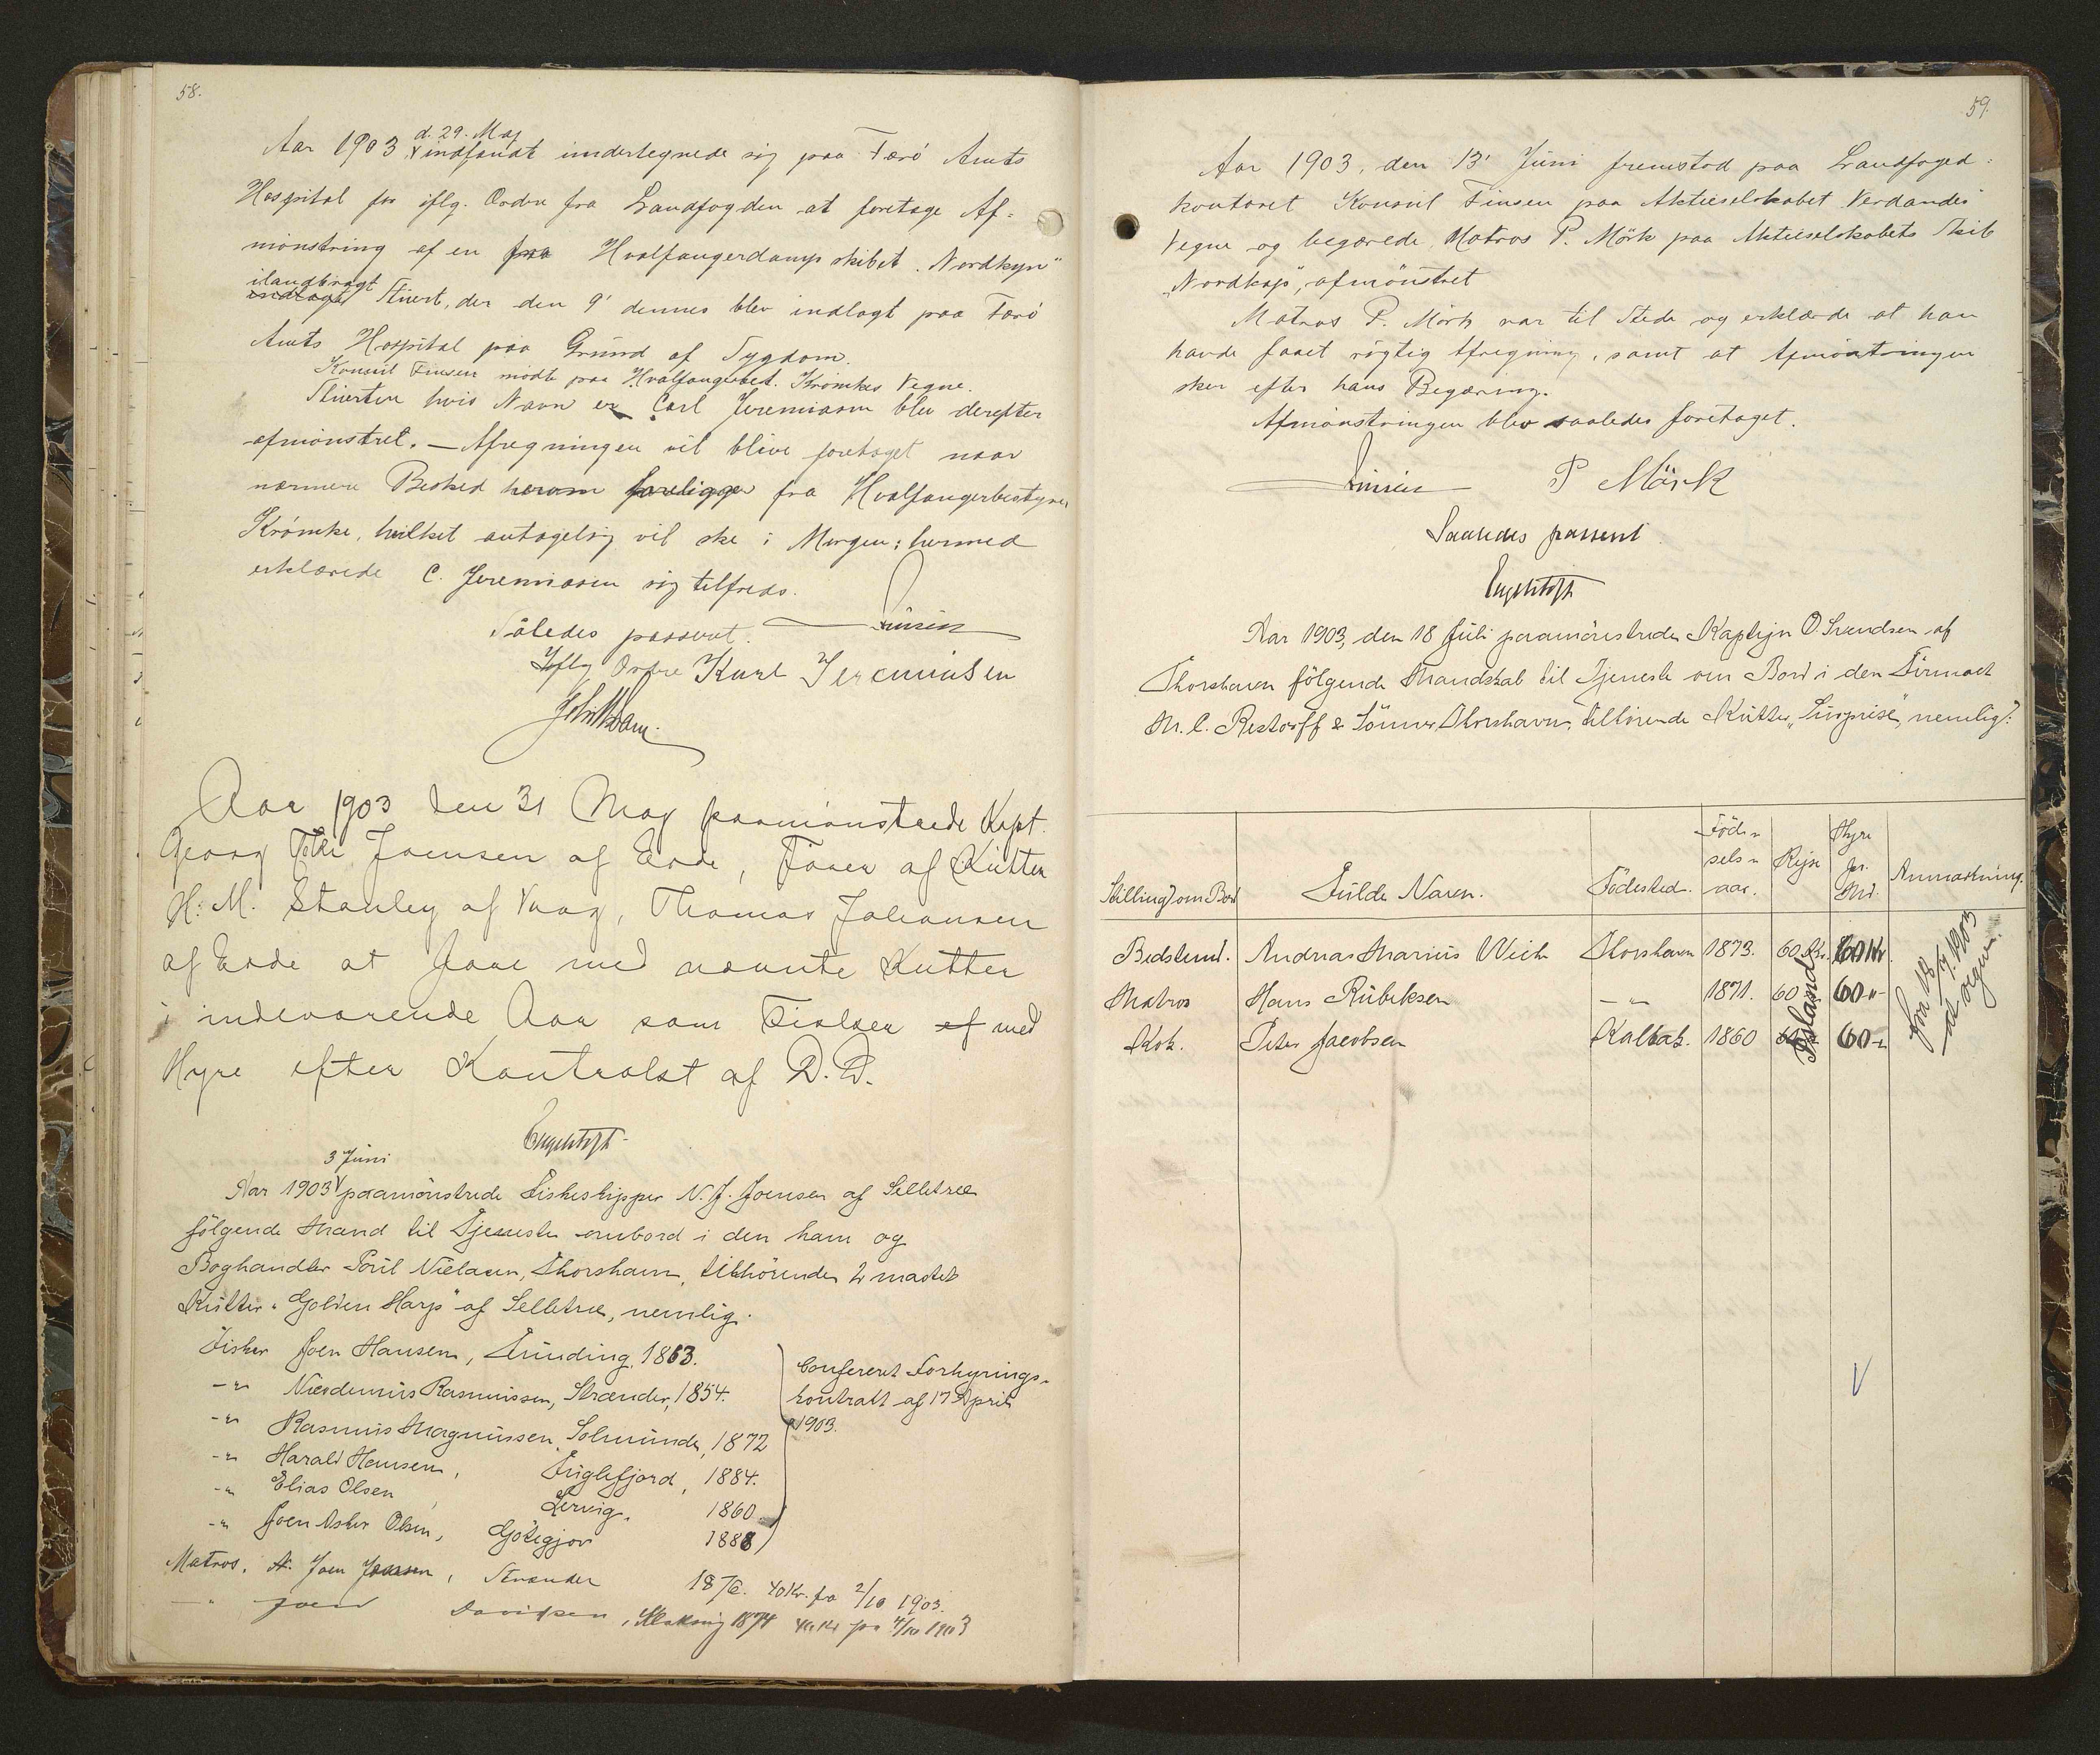 58.
Aar 1903 d. 29. Maj indfandt undertegnede sig paa Færö Amts
Hospital for iflg. Ordre fra Landfogden at foretage Af=
mönstring af en fra Hvalfangerdampskibet "Nordkyn"
ilandbragt indlagt Stuert, der den 9' dennes blev indlagt paa Færö
Amts Hospital paa Grund af Sygdom.
Konsul Finsen mödte paa Hvalfangerbest. Krömkes Vegne.
Stuerten hvis Navn er Carl Jeremiasen blev derefter
afmönstret. — Afregningen vil blive foretaget naar
nærmere Besked herom foreligger fra Hvalfangerbestyrer
Krömke, hvilket antagelig vil ske i Morgen; hermed
erklærede C. Jeremiasen sig tilfreds.
Således passeret. Finsen
Iflg Ordre Karl Jeremiasen
Aar 1903 den 31 Maj paamönstrede Kapt.
Georg Joensen af Eide, Förer af Kutter
H. M. Stanley af Vaag, Thomas Johansen
af Eide at fare med nævnte Kutter
i indeværende Aar som Fisker af med
Hyre efter Kontrakt af D. D.
Engelstoft
Aar 1903 3 Juni paamönstrede Fiskeskipper N. J. Joensen af Selletræ
fölgende Mand til Tjeneste ombord i den ham og
Boghandler Poul Nielsen, Thorshavn, tilhörende 2 mastet
Kutter "Golden Harp" af Selletræ, nemlig.
Fisker Joen Hansen, Funding, 1863.
-"- Nicodemus Rasmussen, Strænder, 1854.
-"- Rasmus Magnussen, Solmunde, 1872
-"- Harald Hansen, Fuglefjord, 1884.
-"- Elias Olsen, Lervig, 1860
-"- Joen Olsen, Götegjov 1888
Confereret Forhyrings-
kontrakt af 17 April
1903.
Matros. Joen Joensen, Strænder 1876. 40 Kr. fra 2/10 1903.
-"- Joen Davidsen, Klaksvig 1874 40 Kr fra 4/10 1903
59.
Aar 1903, den 13' Juni fremstod paa Landfoged=
kontoret Konsul Finsen paa Aktieselskabet Verdandes
Vegne og begærede Matros P. Mörk paa Aktieselskabets Skib
"Nordkap", afmönstret
Matros P. Mörk var til Stede og erklærede at han
havde faaet rigtig Afregning, samt at Afmönstringen
sker efter hans Begæring.
Afmönstringen blev saaledes foretaget.
Finsen P Mörk
Saaledes passeret
Engelstoft
Aar 1903, den 18 Juli paamönstrede Kaptejn O. Svendsen af
Thorshavn fölgende Mandskab til Tjeneste om Bord i den Firmaet
M. C. Restorff & Sönner, Thorshavn, tilhörende Kutter "Surprise", nemlig:
Stilling om Bord Fulde Navn. Födested. Föd- sels- aar. Rejse Hyre pr. Md. Anmærkning.
Bedstemd. Andreas Marius Weihe Thorshavn 1873. 60 Kr. 60 Kr.
Matros Hans Rubeksen -"- 1871. 60 60 "
Kok. Peter Jacobsen Kalbak. 1860 60 60 "
Island
fra 18/7. 1903
at regne.